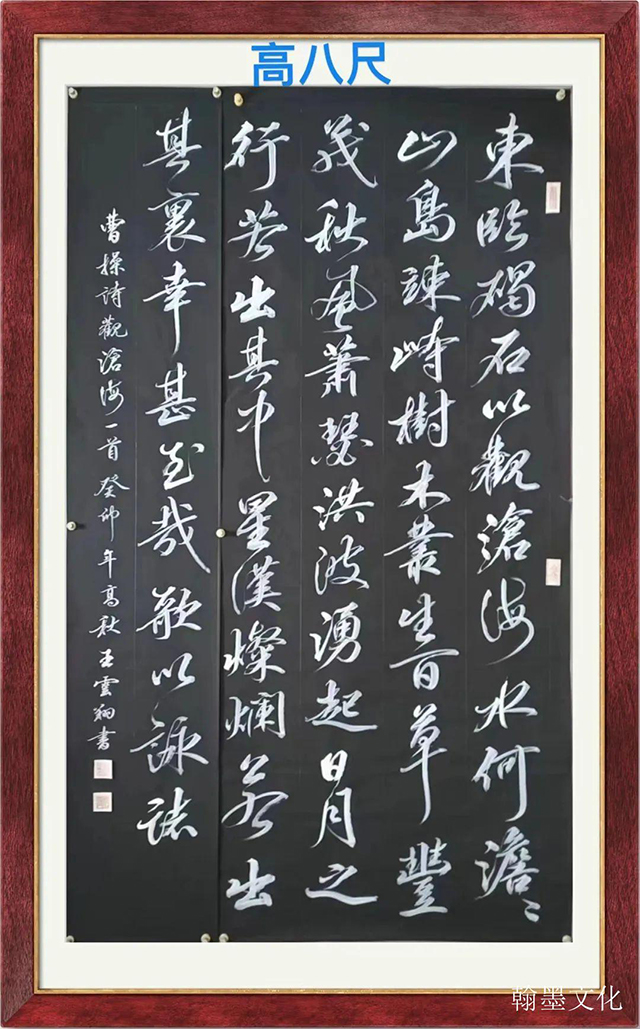 高八尺
東臨碣石以觀滄海水何澹〻
山島竦峙樹木叢生百草豐
茂秋風蕭瑟洪波湧起日月之
行若出其中星漢燦爛若出
其裏幸甚至哉歌以詠誌
曹操詩觀滄海一首癸卯年高秋王雲翔書
翰墨文化